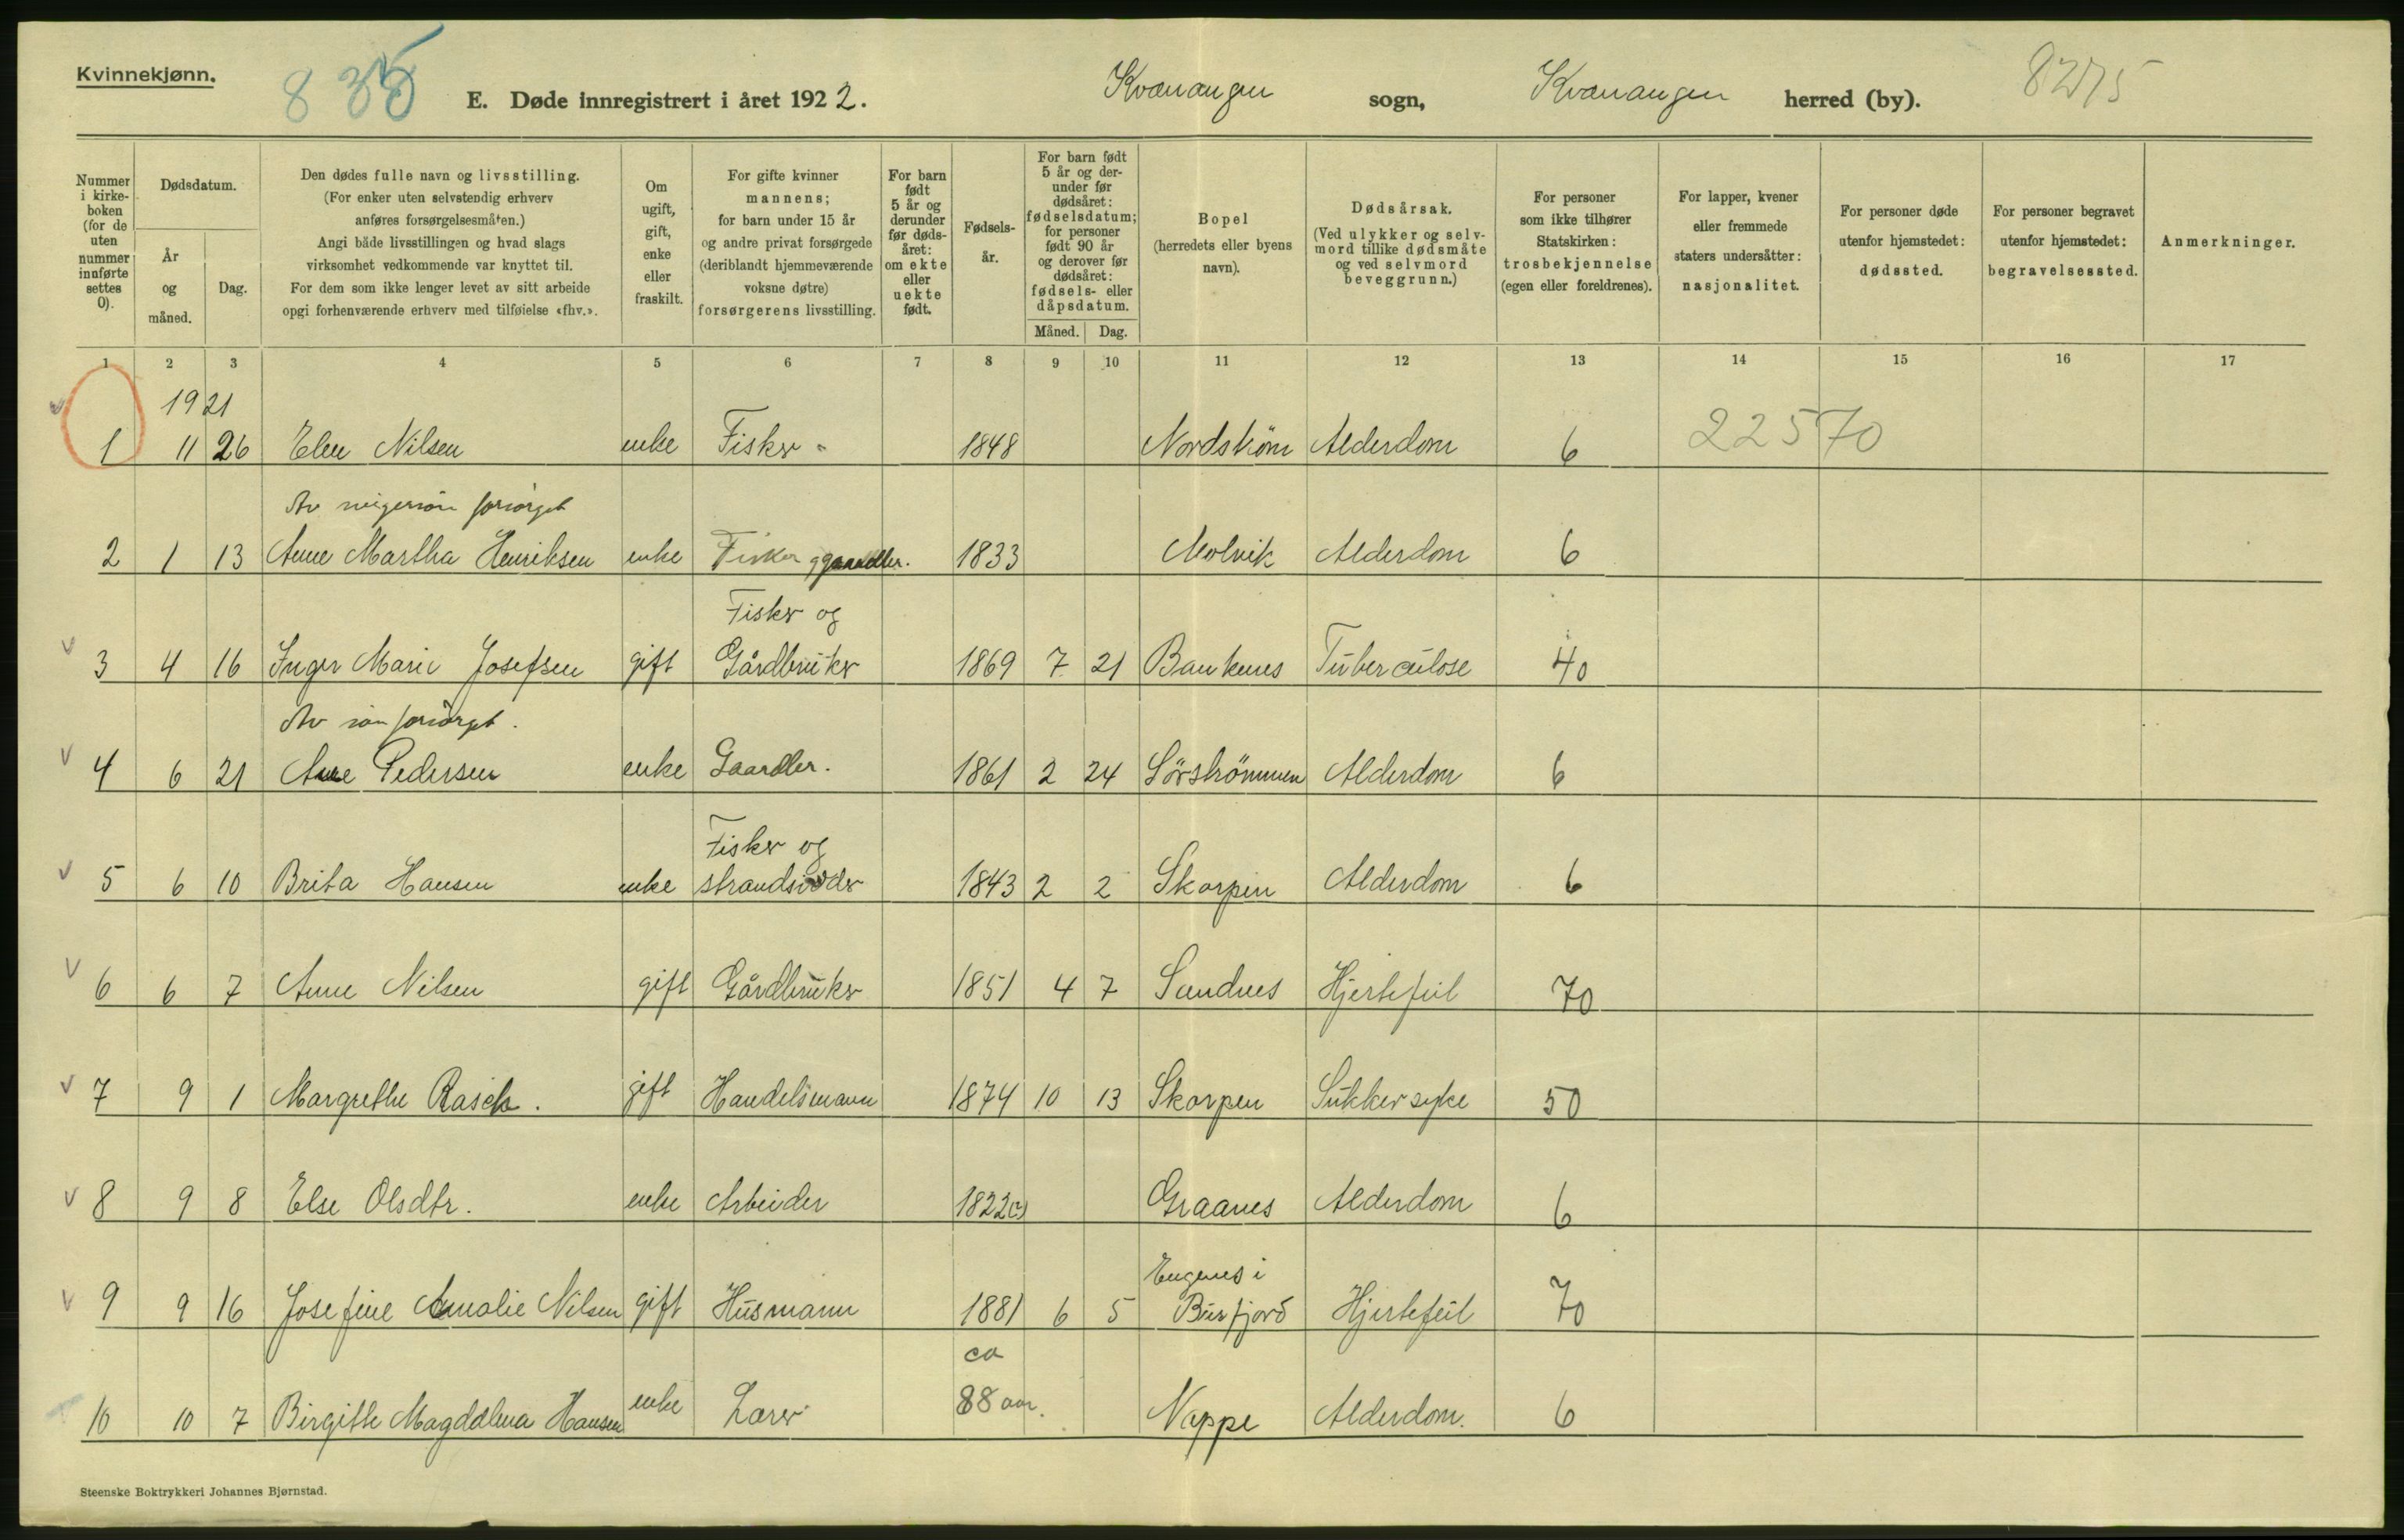 Kvinnekjønn.
835
E. Døde innregistrert i året 1922.
Kvænangen sogn, Kvænangen herred (by).
8275
Nummer i kirke-boken (for de uten nummer innførte settes 0).
Dødsdatum.
År og måned.
Dag.
Den dødes fulle navn og livsstilling.
(For enker uten selvstendig erhverv
anføres forsørgelsesmåten.)
Angi både livsstillingen og hvad slags
virksomhet vedkommende var knyttet til.
For dem som ikke lenger levet av sitt arbeide
opgi forhenværende erhverv med tilføielse «fhv.».
Om ugift, gift, enke eller fraskilt.
For gifte kvinner
mannens;
for barn under 15 år
og andre privat forsørgede
(deriblandt hjemmeværende
voksne døtre)
forsørgerens livsstilling.
For barn født 5 år og derunder før døds-året: om ekte eller uekte født.
Fødsels-år.
For barn født 5 år og der-under før dødsåret: fødselsdatum; for personer født 90 år og derover før dødsåret: fødsels- eller dåpsdatum.
Måned. Dag.
Bopel
(herredets eller byens
navn).
Dødsårsak.
(Ved ulykker og selv-
mord tillike dødsmåte
og ved selvmord
beveggrunn.)
For personer
som ikke tilhører
Statskirken:
trosbekjennelse
(egen eller foreldrenes).
For lapper, kvener
eller fremmede
staters undersåtter:
nasjonalitet.
For personer døde
utenfor hjemstedet:
dødssted.
For personer begravet
utenfor hjemstedet:
begravelsessted.
Anmerkninger.
1 2 3 4 5 6 7 8 9 10 11 12 13 14 15 16 17
1921
1 11 26 Elen Nilsen enke Fisker 1848 Nordström Alderdom 6 22570
Av svigersön forsörget
2 1 13 Anne Martha Henriksen enke Fisker g gaardbr. 1833 Molvik Alderdom 6
Fisker og
3 4 16 Inger Marie Josefsen gift Gårdbruker 1869 7 21 Baukenes Tuberculose 40
Av sön forsörget.
4 6 21 Ane Pedersen enke Gaardbr. 1861 2 24 Sörströmmen Alderdom 6
Fisker og
5 6 10 Brita Hansen enke strandsidder 1843 2 2 Skorpen Alderdom 6
6 6 7 Anne Nilsen gift Gårdbruker 1851 4 7 Sandnes Hjertefeil 70
7 9 1 Margrethe Rasch. gift Handelsmann 1874 10 13 Skorpen Sukkersyke 50
8 9 8 Else Olsdtr. enke Arbeider 1822(?) Graanes Alderdom 6
Engenes i
9 9 16 Josefine Amalie Nilsen gift Husmann 1881 6 5 Burfjord Hjertefeil 70
ca
10 10 7 Birgitte Magdalena Hansen enke Lærer 88 aar. Nappe Alderdom. 6
Steenske Boktrykkeri Johannes Bjørnstad.